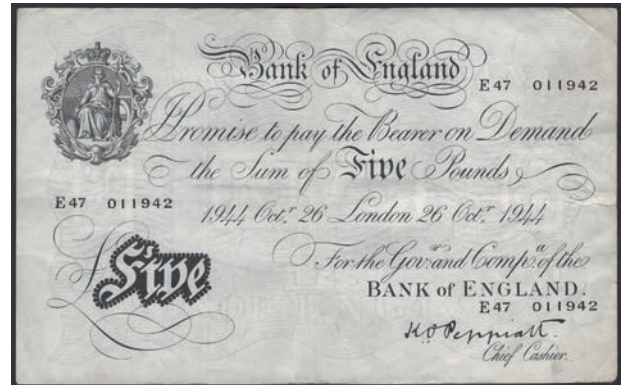 Bank of England
E47 011942
Promise to pay the Bearer on Demand
the Sum of Five Pounds
E47 011942
1944 Octr. 26 London 26 Octr. 1944
For the Govr. and Compa. of the
BANK of ENGLAND.
E47 011942
£Five
K O Peppiatt.
Chief Cashier.